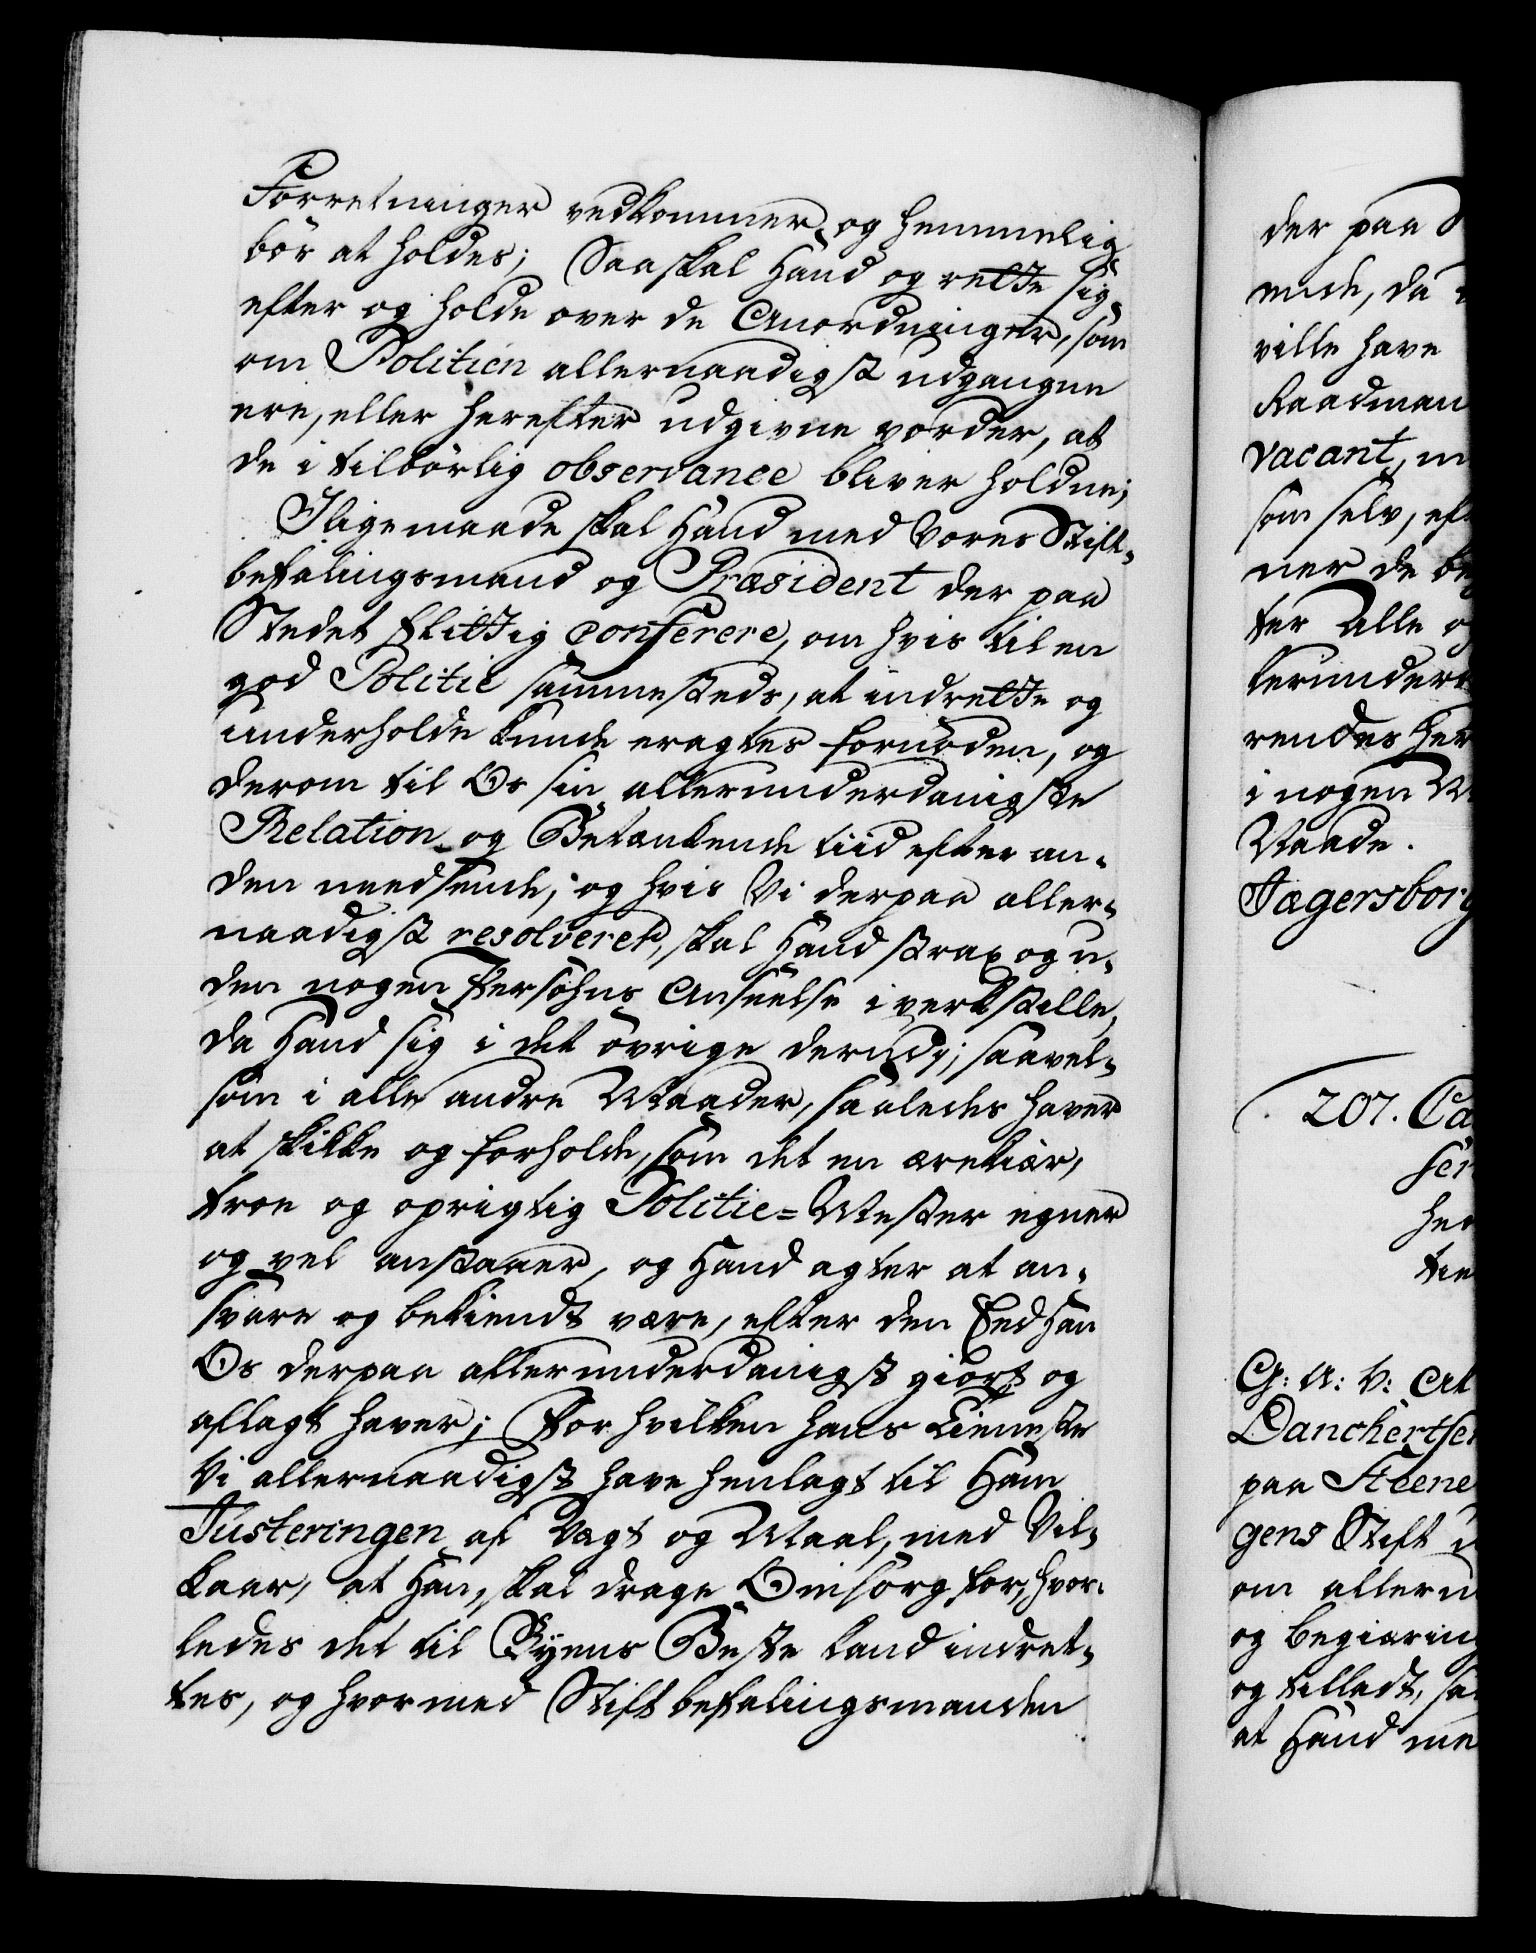 Forretninger vedkommer, og hemmelig
bör at holdes; Saa skal Hand og rette sig
efter og holde over de Anordninger, som
om Politien allernaadigst udgangne
ere, eller herefter udgivne vorder, at
de i tilbörlig observance bliver holdne;
Ilige maade skal Hand med Vores Stift-
befalingsmand og Præsident der paa
Stedet flittig conferere, om hvis til en
god Politie sammesteds, at indrette og
underholde kunde eragtes fornöden, og
derom til Os sin allerunderdanigste
Relation og Betænkende tiid efter an-
den needsende; og hvis Vi derpaa aller-
naadigst resolverer, skal Hand strax og u-
den nogen Persohns Anseelse i verkstille,
da Hand sig i det övrige derudj; saavel-
som i alle andre Maader, saaledes haver
at skikke og forholde, som det en ærekiær,
troe og oprigtig Politie=Mester egner
og vel anstaaer, og Hand agter at an-
svare og bekiendt være, efter den Eed Han
Os derpaa allerunderdanigst giort og
aflagt haver; For hvilken hans Tieneste
Vi allernaadigst have henlagt til Ham
Justeringen af Vægt og Maal, med Vil-
kaar, at Han skal drage Omsorg for, hvor-
ledes det til Byens Beste kand indret-
tes, og hvormed Stiftbefalingsmanden
der paa
mede, da
ville have
Raadman
vacant, m
som selv, eft
ner de be
ter Alle o
lerunderd
rendes her
i nogen M
Maade.
Jægersborg
207. Ca
fer
her
tie
G: A: V: At
Danchertsen
paa Steene
gens Stift
om allern
og begiæring
og tilladt, sa
at Hand me